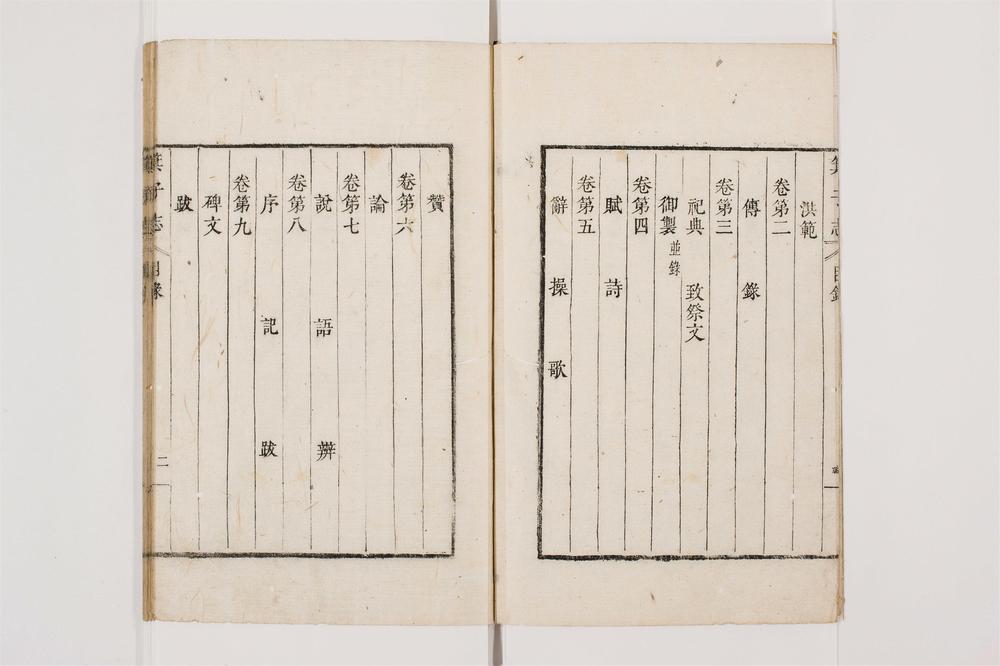 洪範
卷第二
傳 錄
卷第三
祀典 致祭文
御製 並錄
卷第四
賦 詩
卷第五
辭 操 歌
贊
卷第六
論
卷第七
說 語 辨
卷第八
序 記 跋
卷第九
碑文
跋
箕子志 目錄 二